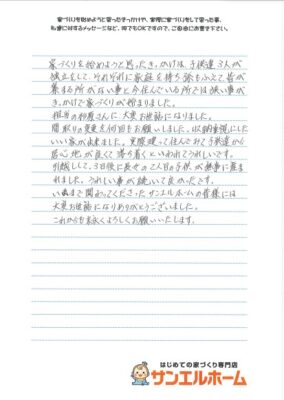 家づくりを始めようと思ったきっかけや、実際に家づくりをして思った事、
私達に対するメッセージなど、何でもOKですので、ご自由にお書き下さい。
家づくりを始めようと思ったきっかけは、子供達3人が
独立をして、それぞれに家庭を持ち孫もふえて皆が
集まる所がない事と今住んでいる所では狭い事が
きっかけで家づくりが始まりました。
担当の さんに大変お世話になりました。
間取りの変更を何回もお願いしました。収納重視にした
いい家が出来ました。実際建って住んでみて子供達から
居心地が良くて落ち着くといわれてうれしいです。
引越しして、3日後に長女の2人目の子供が無事に産ま
れました。うれしい事が続いて良かったです。
いままで関わってくださったサンエルホームの皆様には
大変お世話になりありがとうございました。
これからも末永くよろしくお願いいたします。
はじめての家づくり専門店
サンエルホーム